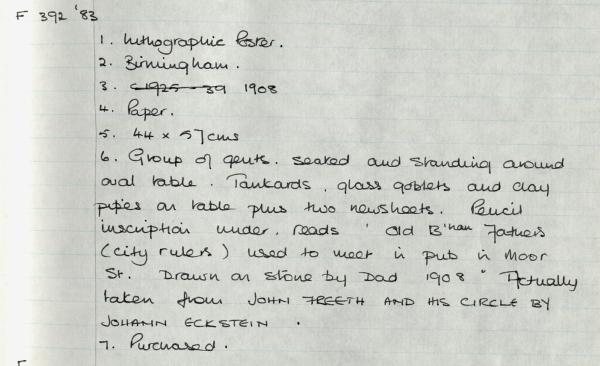 F 392 '83
1. Lithographic Poster.
2. Birmingham.
3. c 1925 - 39 1908
4. Paper.
5. 44 x 57cms
6. Group of gents. seated and standing around
oval table. Tankards, glass goblets and clay
pipes on table plus two newsheets. Pencil
inscription under. reads ' Old B'ham Fathers
(city rulers) used to meet in pub in Moor
St. Drawn on stone by Dad 1908 " Actually
taken from JOHN FREETH AND HIS CIRCLE BY
JOHANN ECKSTEIN .
7. Purchased.